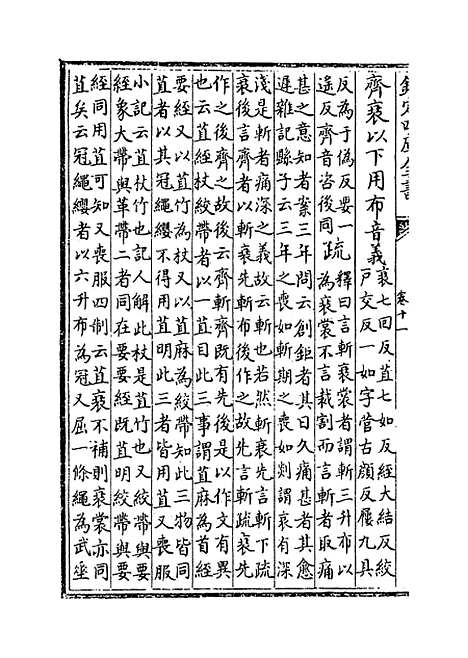 欽定四庫全書
卷十一
齊衰以下用布音義衰七回反苴七如反絰大結反絞
戶交反一如字菅古顔反屨九具
反為于偽反要一
遥反齊音咨後同疏釋曰言斬衰裳者謂斬三升布以
為衰裳不言裁割而言斬者取痛
甚之意知者案三年問云創鉅者其日久痛甚者其愈
遲雜記縣子云三年之喪如斬期之喪如剡謂哀有深
淺是斬者痛深之義故云斬也若然斬衰先言斬下疏
衰後言齊者以斬衰先斬布後作之故先言斬疏衰先
作之後齊之故後云齊斬齊既有先後是以作文有異
也云苴絰杖絞帶者以一苴目此三事謂苴麻為首絰
要絰又以苴竹為杖又以苴麻為絞帶知此三物皆同
苴者以其冠繩纓不得用苴明此三者皆用苴又喪服
小記云苴杖竹也記人解此杖是苴竹也又絞帶與要
絰象大帶與革帶二者同在要要絰既苴明絞帶與要
絰同用苴可知又喪服四制云苴衰不補則衰裳亦同
苴矣云冠繩纓者以六升布為冠又屈一條繩為武垂